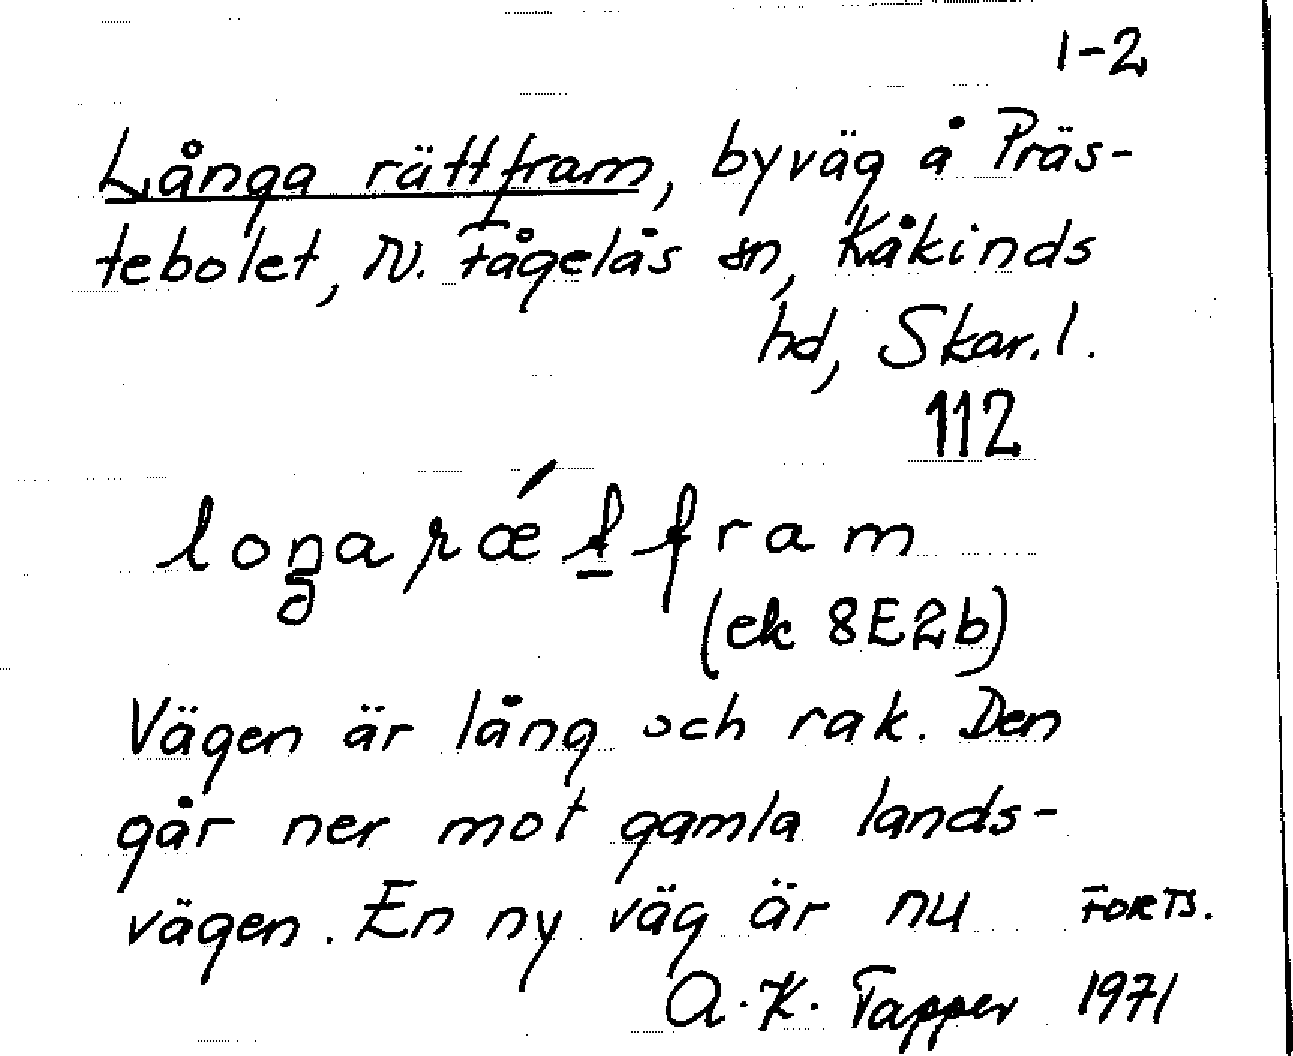 1-2
Långa rättfram, byväg å Präs-
tebolet, N. Fågelås sn, Kåkinds
hd, Skar.l.
112
(ek 8E2b)
Vägen är lång och rak. Den
går ner mot gamla lands-
vägen. En ny väg är nu FORTS.
A.K. Tapper 1971